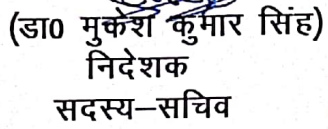 (डा0 मुकेश कुमार सिंह)
निदेशक
सदस्य–सचिव